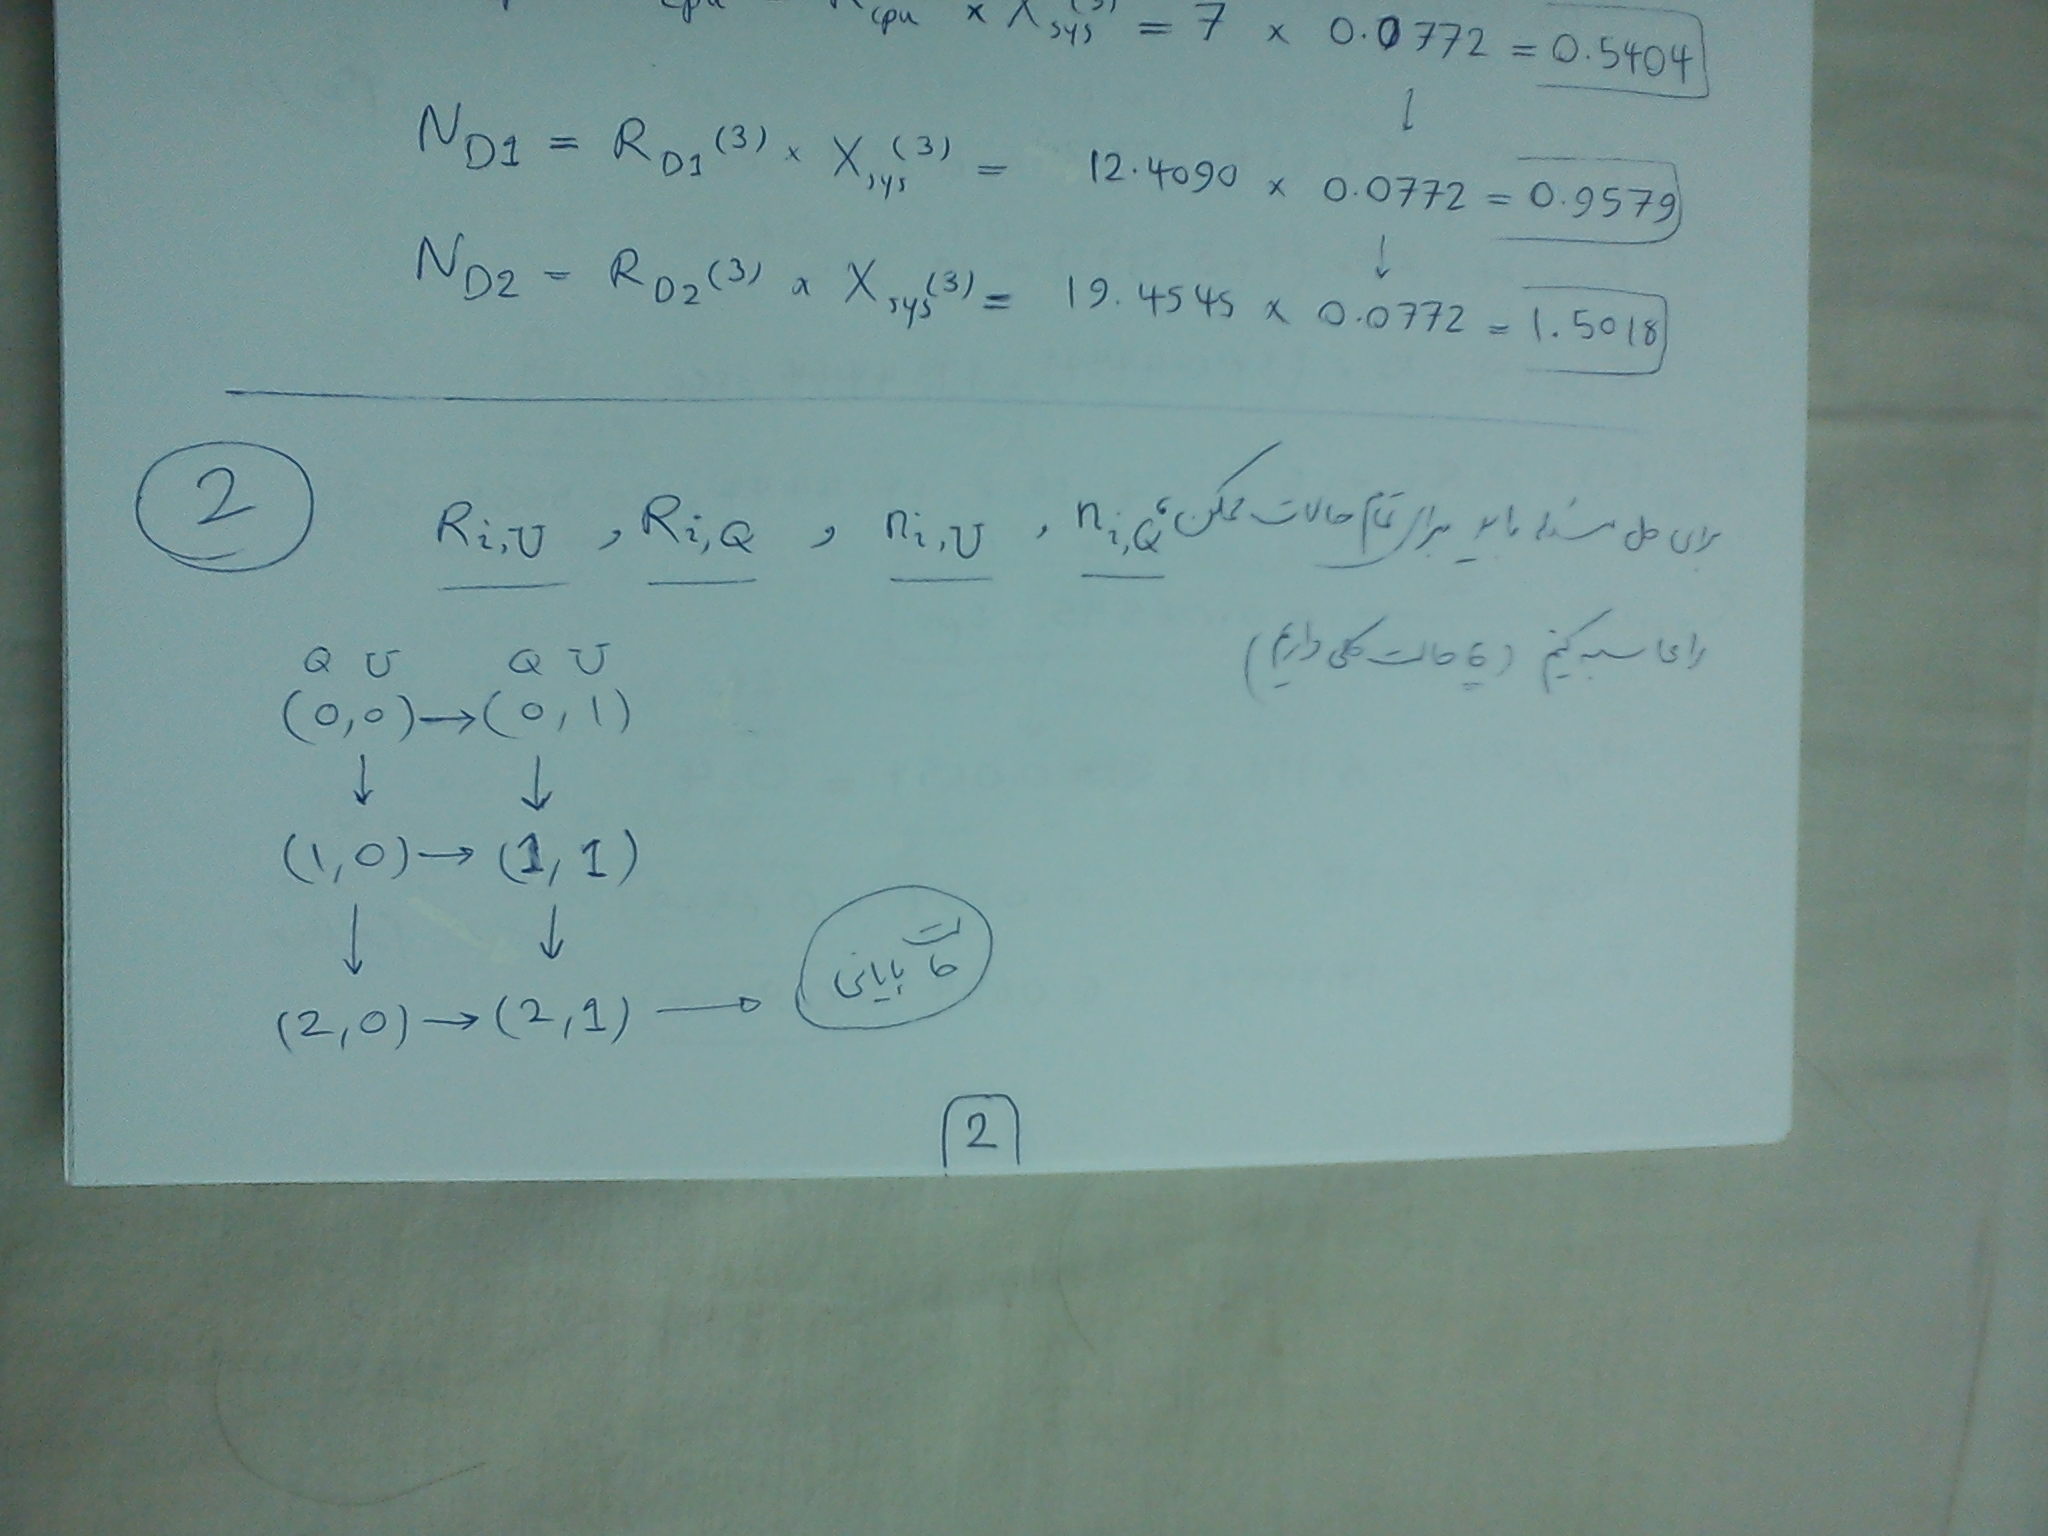 cpu = R cpu × X sys (3) = 7 × 0.0772 = 0.5404
↓
N D1 = R D1 (3) × X sys (3) = 12.4090 × 0.0772 = 0.9579
↓
N D2 = R D2 (3) × X sys (3) = 19.4545 × 0.0772 = 1.5018
2
برای حل مسئله باید برای تمام حالات ممکن، R i,U , R i,Q , n i,U , n i,Q
را محاسبه کنیم (6 حالت کلی داریم)
Q U Q U
(0,0) → (0,1)
↓ ↓
(1,0) → (1,1)
↓ ↓
(2,0) → (2,1) → حالت پایانی
2